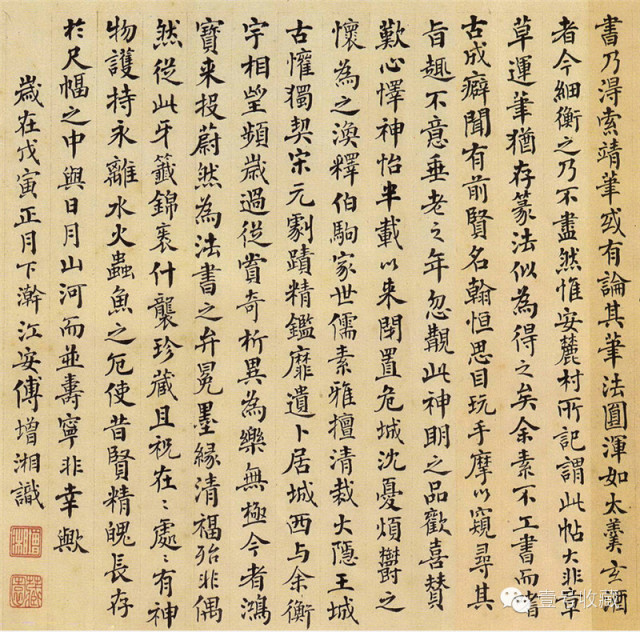 書乃淂索靖筆或有論其筆法圓渾如太羹玄酒
者今細衡之乃不盡然惟安麓村所記謂此帖大非章
草運筆猶存篆法似為得之矣余素不工書而嗜
古成癖聞有前賢名翰恒思目玩手摩以窺尋其
旨趣不意垂老之年忽覩此神明之品歡喜贊
歎心懌神怡半載以来閉置危城沈憂煩鬱之
懷為之渙釋伯駒家世儒素雅擅清裁大隱王城
古懽獨契宋元劇蹟精鑑靡遺卜居城西与余衡
宇相望頻歲過從賞奇析異為樂無極今者鴻
寶来投蔚然為法書之弁冕墨緣清福殆非偶
然從此牙籤錦裹什襲珍藏且祝在〻處〻有神
物護持永離水火蟲魚之厄使昔賢精魄長存
於尺幅之中與日月山河而並壽寧非幸歟
歲在戊寅正月下澣江安傅增湘識
增湘
藏園
壹号收藏